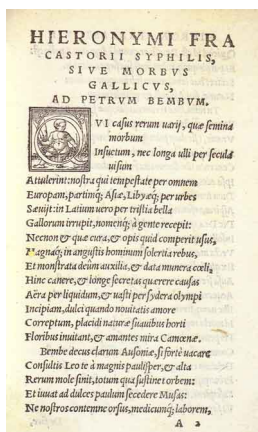 HIERONYMI FRA
CASTORII SYPHILIS,
SIVE MORBVS
GALLICVS,
AD PETRVM BEMBVM.
QVI casus rerum uarij, quæ semina
morbum
Insuetum, nec longa ulli per secula
uisum
Attulerint: nostra qui tempestate per omnem
Europam, partimq; Asiæ, Libyæq; per urbes
Sæuijt: in Latium uero per tristia bella
Gallorum irrupit, nomenq; à gente recepit:
Necnon & quæ cura, & opis quid comperit usus,
Magnaq; in angustis hominum solertia rebus,
Et monstrata deûm auxilia, & data munera cœli,
Hinc canere, & longe secretas quærere causas
Aëra per liquidum, & uasti per sydera olympi
Incipiam, dulci quando nouitatis amore
Correptum, placidi naturæ suauibus horti
Floribus inuitant, & amantes mira Camœnæ.
Bembe decus clarum Ausoniæ, si forte uacare
Consultis Leo te à magnis paulisper, & alta
Rerum mole sinit, totum qua sustinet orbem:
Et iuuat ad dulces paulum secedere Musas:
Ne nostros contemne orsus, medicumq; laborem,
A 2